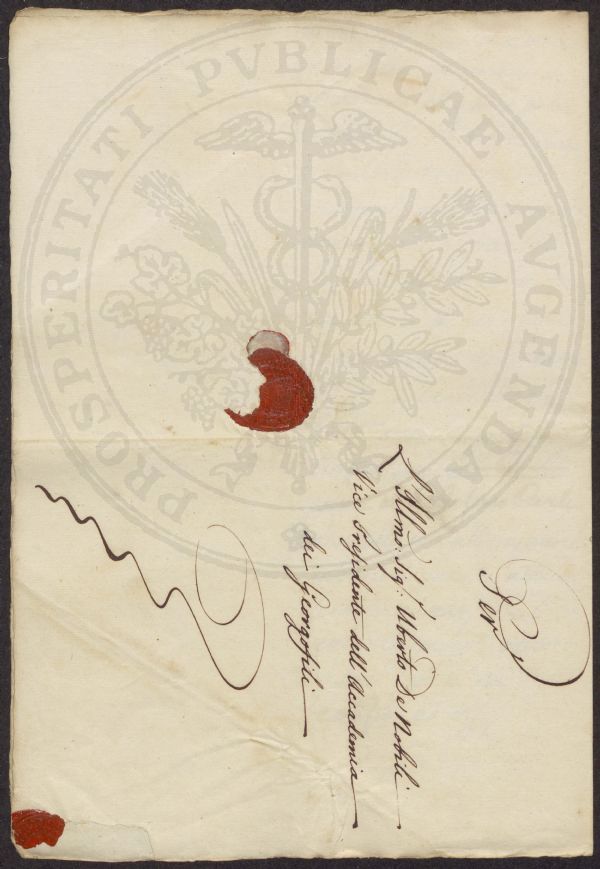 PROSPERITATI PVBLICAE AVGENDAE
Per
L'Illmo. Sig. Uberto De Nobili
Vice Presidente dell'Accademia
dei Georgofili